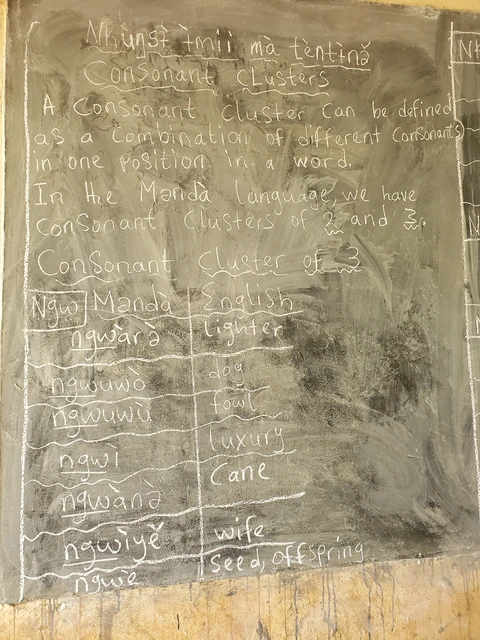 Nkuŋsǐ ìmiì mà tèntìnǝ̌
Consonant clusters
A Consonant cluster can be defined
as a combination of different consonants
in one position in a word.
In the Mǝndà language, we have
consonant clusters of 2 and 3
Consonant cluster of 3
Ngw Mǝndà English
ngwàrǝ̀ lighter
ngwuwò dog
ngwuwù fowl
ngwI luxury
ngwànǝ̀ Cane
ngwìyě wife
ngwè seed, offspring